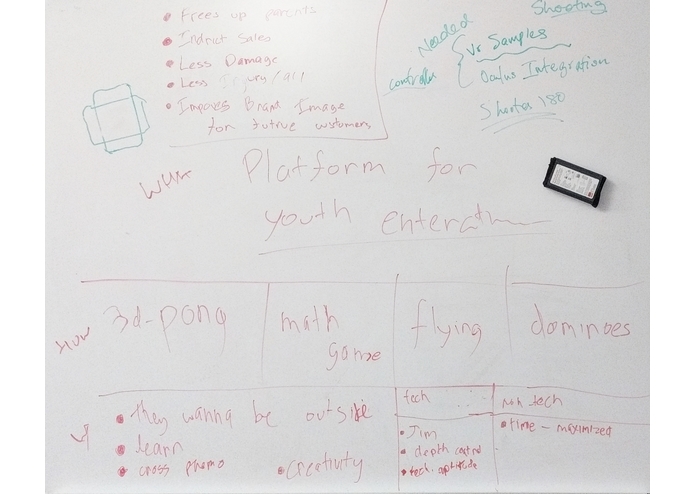 • Frees up parents
• Indrict Sales
• Less Damage
• Less Injury/acci
• Improves Brand Image
for futrue customers
Shooting
Needed
Vr Samples
controller
Oculus Integration
Shorter 180
What
Platform for
youth
How
3d-pong
math
game
flying
dominoes
• they wanna be outside
• learn
• cross
• creativity
tech
• Jim
• depth control
• tech. aptitude
non tech
• time - maximized